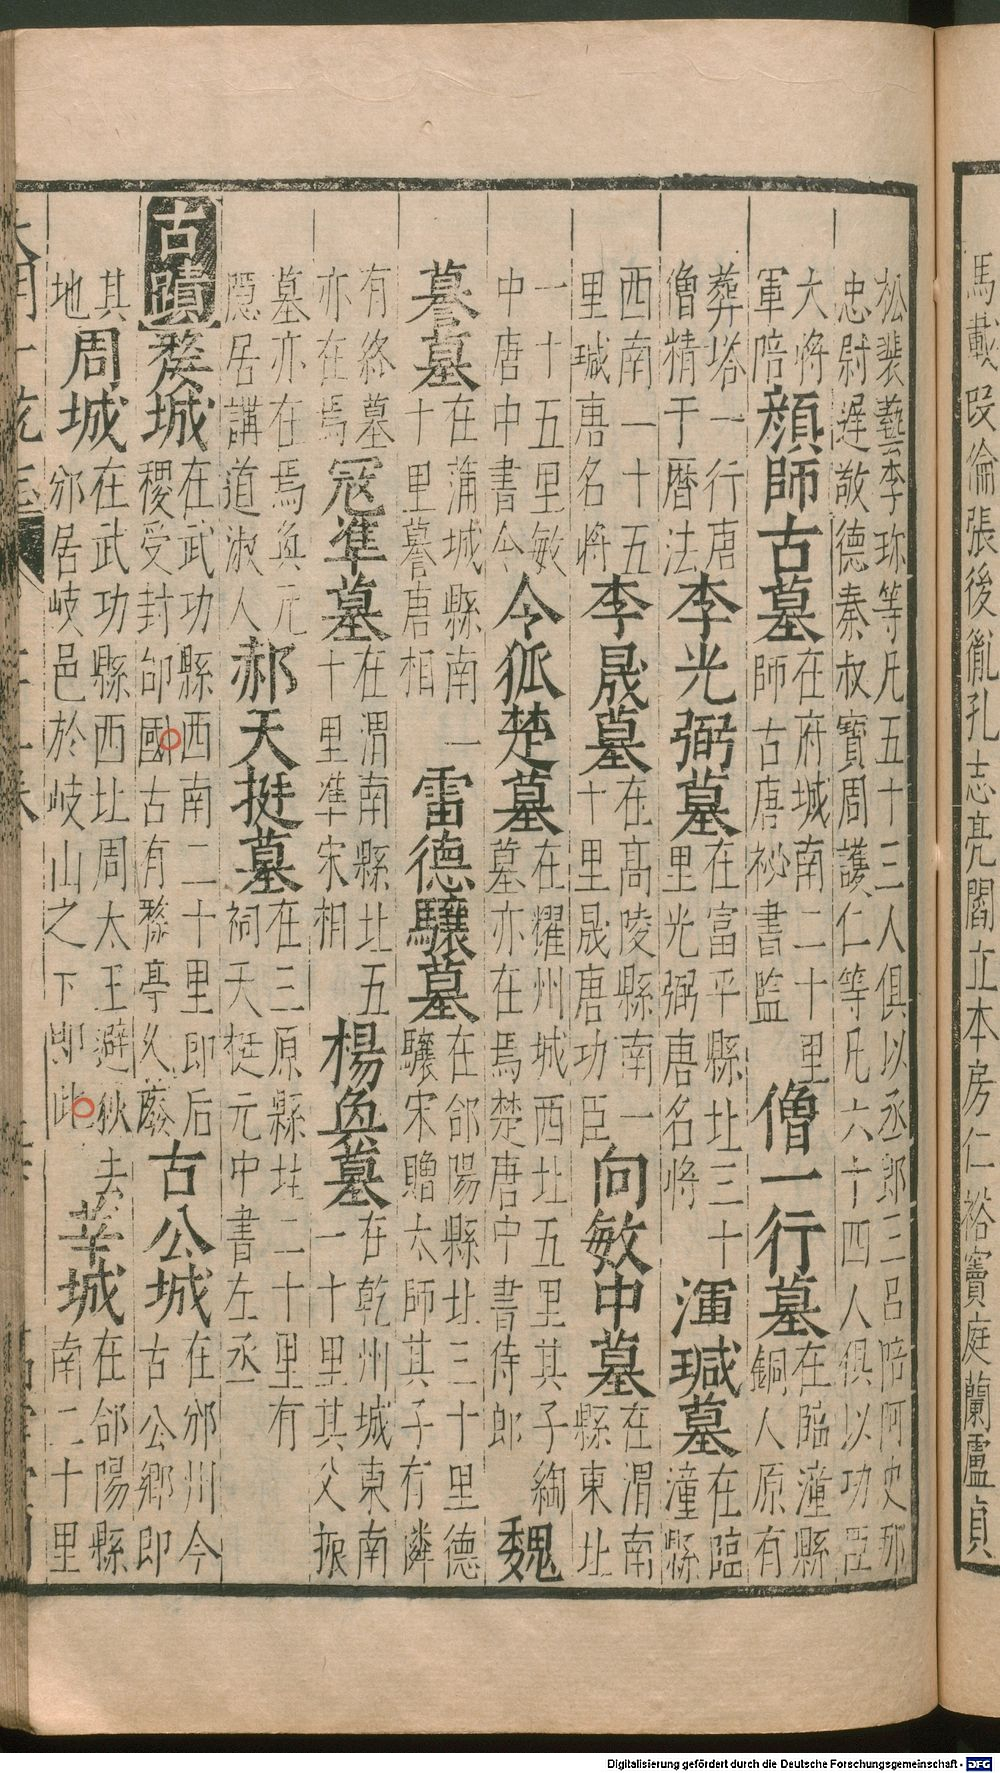 馬載段倫張後胤孔志亮閻立本房仁裕竇庭蘭盧貞
松裴藝李珎等凡五十三人俱以丞郎三吕陪阿史那
忠尉遲敬德秦叔寳周護仁等凡六十四人俱以功臣
大將軍陪顔師古墓在府城南二十里師古唐祕書監僧一行墓在臨潼縣銅人原有
葬塔一行唐僧精于曆法李光弼墓在富平縣北三十里光弼唐名將渾瑊墓在臨潼縣
西南一十五里瑊唐名將李晟墓在高陵縣南一十里晟唐功臣向敏中墓在渭南縣東北
一十五里敏中唐中書令令狐楚墓在耀州城西北五里其子綯墓亦在焉楚唐中書侍郎魏
謩墓在蒲城縣南一十里謩唐相雷德驤墓在郃陽縣北三十里德驤宋贈太師其子有隣
有終墓亦在焉寇準墓在渭南縣北五十里準宋相楊奐墓在乾州城東南一十里其父振
墓亦在焉奐元隠居講道淑人郝天挺墓在三原縣北二十里有祠天挺元中書左丞
古蹟斄城在武功縣西南二十里即后稷受封邰國古有斄亭久廢古公城在邠州今古公鄉即
其地周城在武功縣西北周太王避狄去邠居岐邑於岐山之下即此莘城在郃陽縣南二十里
Digitalisierung gefördert durch die Deutsche Forschungsgemeinschaft - DFG